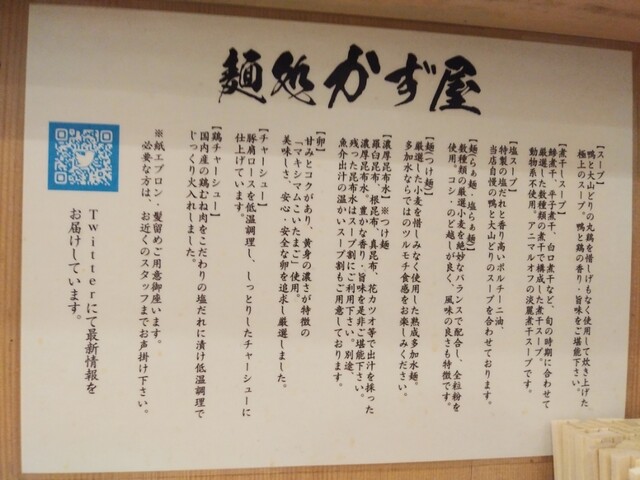 麺処かず屋
【スープ】
鴨と大山どりの丸鶏を惜しげもなく使用して炊き上げた
極上のスープ。鴨と鶏の香り・旨味をご堪能下さい。
【煮干しスープ】
鯵煮干、平子煮干、白口煮干など、旬の時期に合わせて
厳選した数種類の煮干で構成した煮干スープ。
動物系不使用。アニマルオフの淡麗煮干スープです。
【塩スープ】
特製の塩だれと香り高いポルチーニ油、
当店自慢の鴨と大山どりのスープを合わせております。
【麺(らぁ麺、塩らぁ麺)】
数種類の厳選小麦を絶妙なバランスで配合し、全粒粉を
使用。コシ、のど越しが良く、風味の良さも特徴です。
【麺(つけ麺)】
厳選した小麦を惜しみなく使用した熟成多加水麺。
多加水ならではのツルモチ食感をお楽しみください。
【濃厚昆布水】※つけ麺
羅臼昆布、根昆布、真昆布、花カツオ等で出汁を採った
濃厚昆布水。豊かな香り・旨味を是非ご堪能下さい。
残った昆布水はスープ割にご利用下さい。別途、
魚介出汁の温かいスープ割もご用意しております。
【卵】
甘みとコクがあり、黄身の濃さが特徴の
「マキシマムこいたまご」使用。
美味しさ、安心・安全な卵を追求し厳選しました。
【チャーシュー】
豚肩ロースを低温調理し、しっとりしたチャーシューに
仕上げています。
【鶏チャーシュー】
国内産の鶏むね肉をこだわりの塩だれに漬け低温調理で
じっくり火入れしました。
※紙エプロン・髪留めご用意御座います。
必要な方は、お近くのスタッフまでお声掛け下さい。
Twitterにて最新情報を
お届けしています。